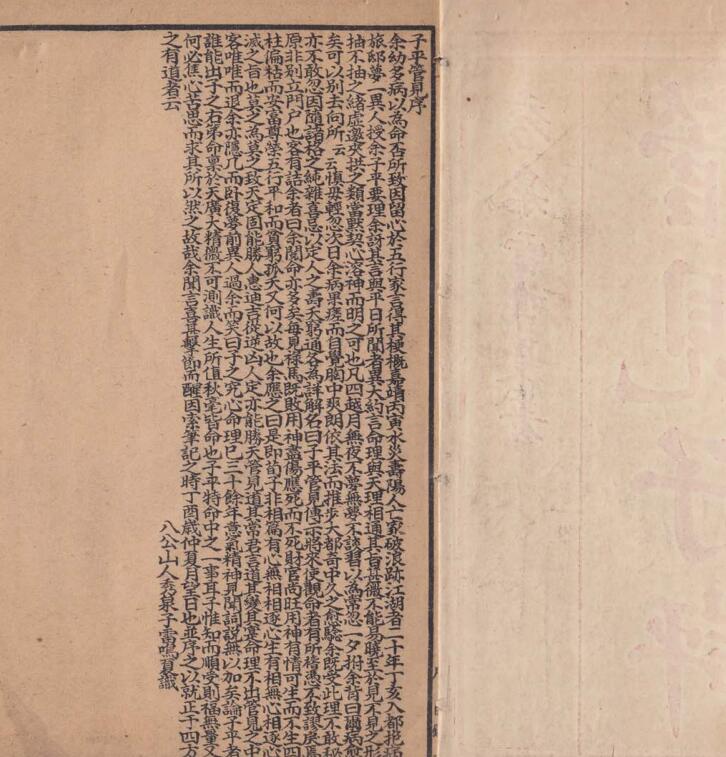 子平管見序
余幼多病以為命否所致因留心於五行家言得其梗概嘉靖丙寅水災壽陽人亡家破浪跡江湖者二十年丁亥入都抱病
旅邸夢一異人授余子平要理余訝其言與平日所聞者異大約言命理與天理相通其旨甚微不能易曉至於見不見之形
抽不抽之緒虛邀夾拱之類當默契心洛神而明之可也凡四越月無夜不夢無夢不談習以為常忽一夕拊余背曰爾病愈
矣可以別去向所云云慎毋輕忽次日余病果瘥而自覺胸中爽朗依其法而推步大都奇中久之愈驗余既受此理不敢秘
亦不敢忽因隨諸格之純雜喜忌以定人之壽夭窮通各為詳解名曰子平管見傳示將來使觀命者有所稽憑不致謬戾焉
原非別立門户也客有詰余者曰余閱命亦多矣每見祿馬既敗用神盡傷應死而不死財官尚旺用神有情可生而不生四
柱偏枯而安富尊榮五行平和而貧窮孤夭又何以故也余應之曰是即荀子非相篇有心無相相逐心生有相無心相逐心
滅之旨也莫之為莫之致天定固能勝人惠迪吉從逆凶人定亦能勝天管見道其常君言道其變其寔命理不出管見之中
客唯唯而退余亦隱几而卧復夢前異人過余而笑曰子之究心命理已三十餘年意氣精神見聞詞說無以加矣論子平者
誰能出子之右第命稟於天廣大精微不可測識人生所值秋毫皆命也子平特命中之一事耳子惟知而順受則福無量又
何必焦心苦思而求其所以然之故哉余聞言喜甚擊節而醒因索筆記之時丁酉歲仲夏月望日也並序之以就正于四方
之有道者云
八公山人秀泉子雷鳴夏識